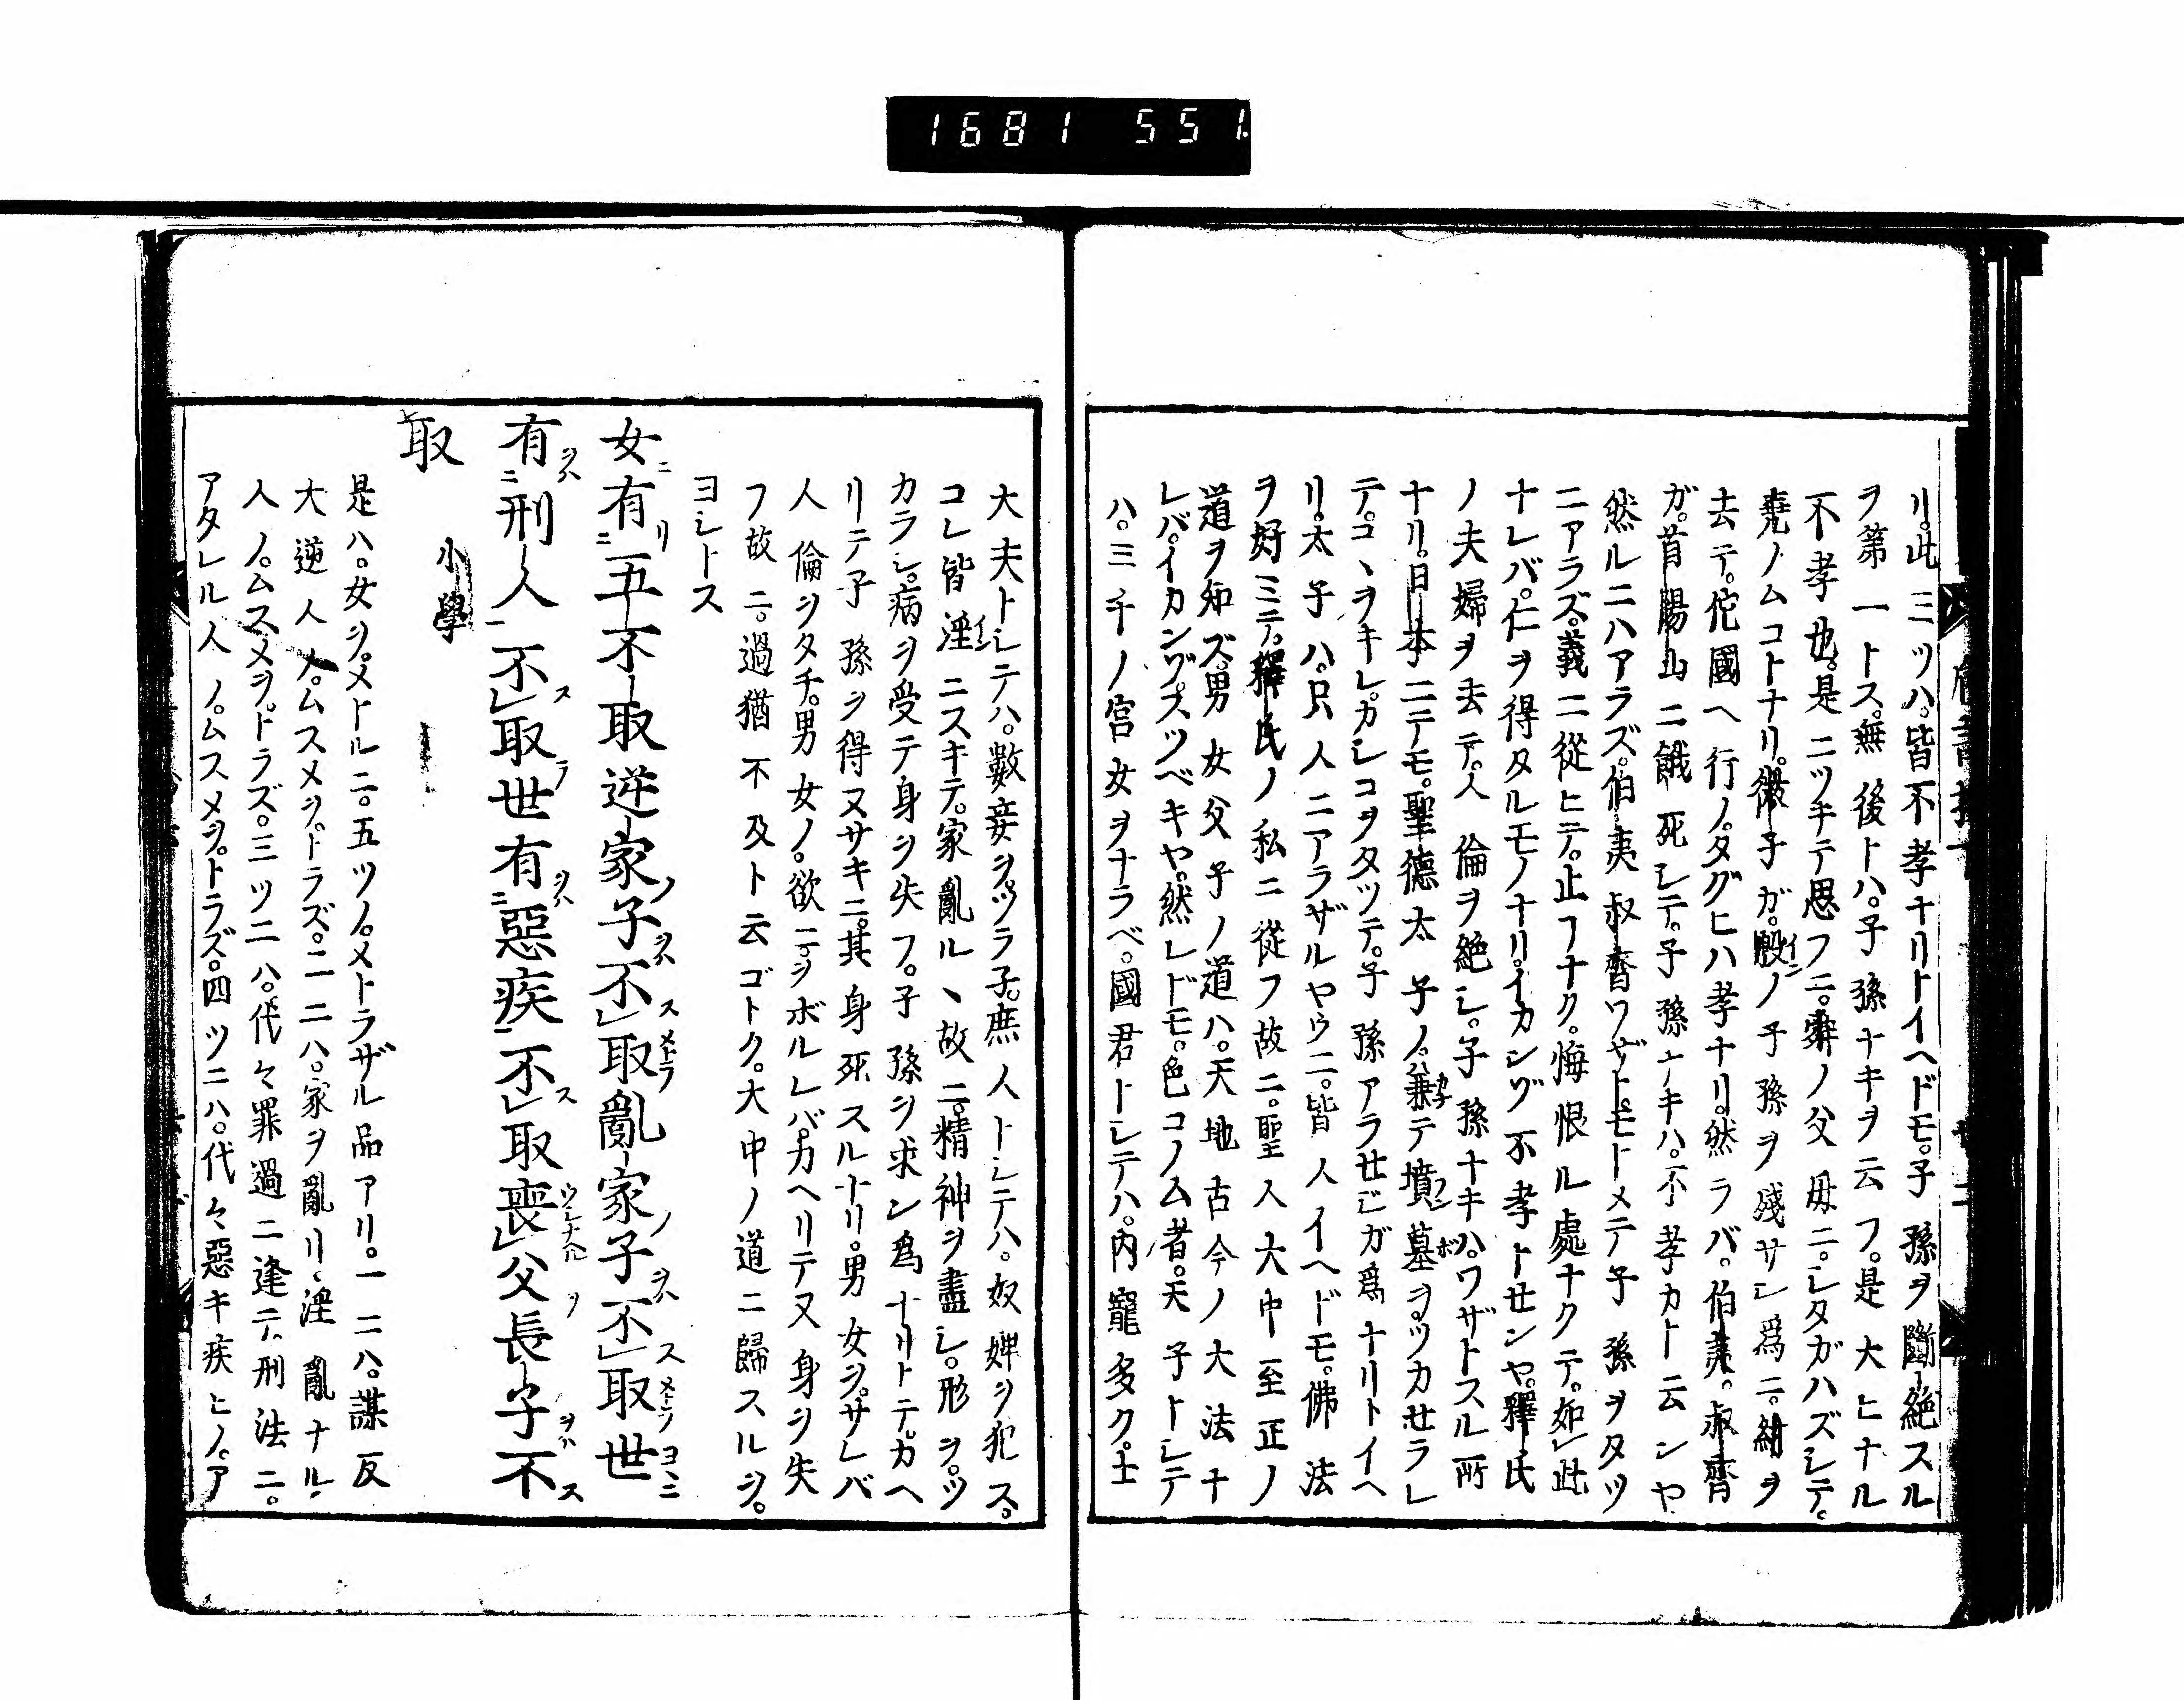 1681 551
リ。此三ツハ。皆不孝ナリトイヘドモ。子孫ヲ斷絶スル
ヲ第一トス。無後トハ。子孫ナキヲ云フ。是大ヒナル
不孝也。是ニツキテ思フニ。舜ノ父母ニ。シタガハズシテ。
堯ノムコトナリ。微子ガ。殷ノ子孫ヲ殘サン爲ニ。紂ヲ
去テ。佗國ヘ行ノ。タグヒハ孝ナリ。然ラバ。伯夷。叔齊
ガ。首陽山ニ餓死シテ。子孫ナキハ。不孝カト云ンヤ
然ルニハアラズ。伯夷叔齊ワザトモトメテ子孫ヲタツ
ニアラズ。義ニ從ヒテ。止フナク。悔恨ル處ナクテ。如レ此
ナレバ。仁ヲ得タルモノナリ。イカンゾ不孝トセンヤ。釋氏
ノ夫婦ヲ去テ。人倫ヲ絶シ。子孫ナキハ。ワザトスル所
ナリ。日本ニテモ。聖德太子ノ。兼テ墳墓ヲ。ツカセラレ
テ。コヽヲキレ。カシコヲタツテ。子孫アラセジガ爲ナリトイヘ
リ。太子ハ。只人ニアラザルヤウニ。皆人イヘドモ。佛法
ヲ好ミテ。釋氏ノ私ニ從フ故ニ。聖人大中至正ノ
道ヲ知ズ。男女父子ノ道ハ。天地古今ノ大法ナ
レバ。イカンゾ。スツベキヤ。然レドモ。色コノム者。天子トシテ
ハ。三千ノ宮女ヲナラベ。國君トシテハ。内寵多ク。士
大夫トシテハ。數妾ヲ。ツラ子。庶人トシテハ。奴婢ヲ犯ス。
コレ皆淫ニスキテ。家亂ルヽ故ニ。精神ヲ盡シ。形ヲ。ツ
カラシ。病ヲ受テ身ヲ失フ。子孫ヲ求ン爲ナリトテ。カヘ
リテ子孫ヲ得ヌサキニ。其身死スルナリ。男女ヲ。サレバ
人倫ヲタチ。男女ノ。欲ニ。ヲボルレバ。カヘリテ又身ヲ失
フ故ニ。過猶不及ト云ゴトク。大中ノ道ニ歸スルヲ。
ヨシトス
女有五不取逆家子不取亂家子不取世
有刑人不取世有惡疾不取喪父長子不
取
小學
是ハ。女ヲ。メトルニ。五ツノ。メトラザル品アリ。一ニハ。謀反
大逆人ノ。ムスメヲ。トラズ。二ニハ。家ヲ亂リ。淫亂ナル
人ノ。ムスメヲ。トラズ。三ツニハ。代々罪過ニ逢テ。刑法ニ。
アタレル人ノ。ムスメヲ。トラズ。四ツニハ。代々惡キ疾ヒノ。ア